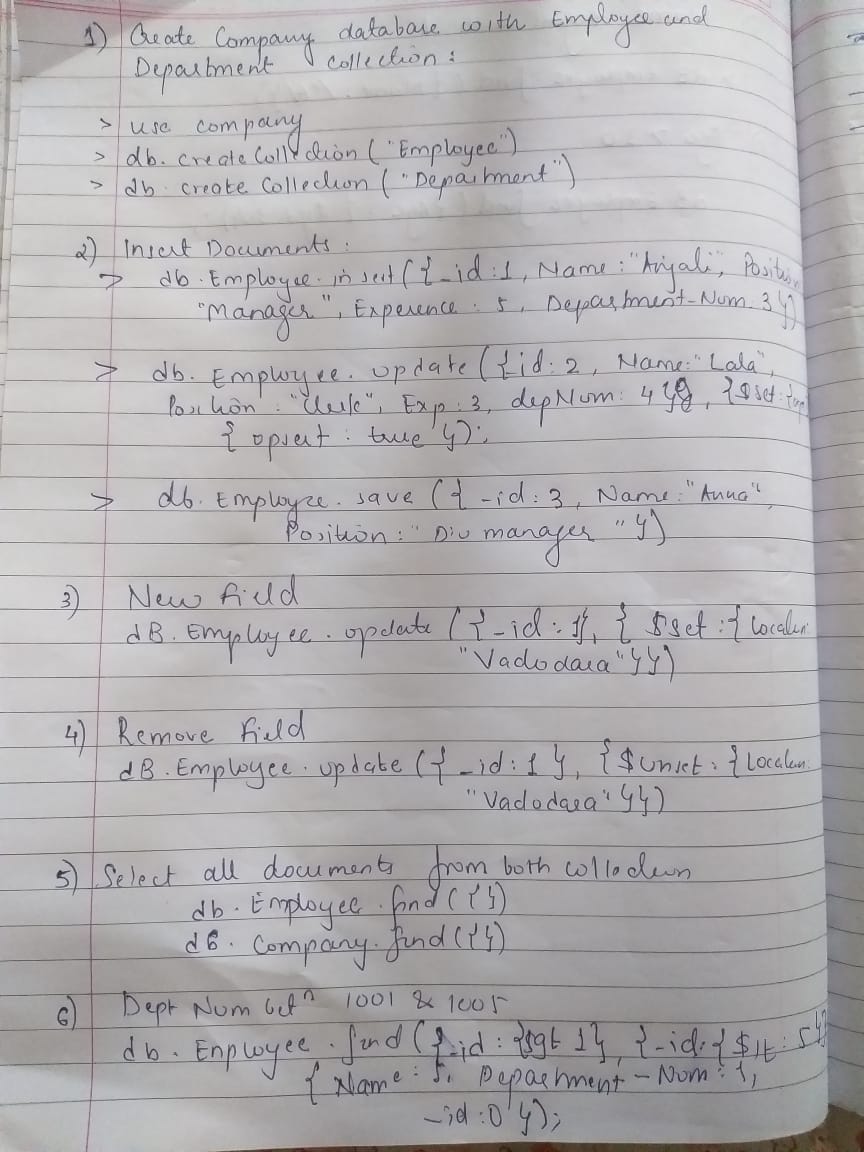 1) Create Company database with Employee and
Department collection :
> use company
> db. createCollection ("Employee")
> db. create Collection ("Department")
2) Insert Documents :
> db. Employee. insert ({_id:1, Name : "Anjali", Position
"Manager", Experence : 5, Department-Num. 3 })
> db. Employee. update ({id: 2, Name: "Lala",
Position : "Clerk", Exp: 3, depNum: 4 }}, {$set: {
{ upsert : true });
> db. Employee. save ({ _id: 3, Name: "Anna"
Position : "Div manager" })
3) New field
dB. Employee. update ({_id: 1}, { $set : {
"Vadodara" }})
4) Remove field
dB. Employee. update ({ _id: 1 }, {$unset : {
"Vadodara" }})
5) Select all documents from both
db. Employee. find ({})
dB. Company. find ({})
6) Dept Num betn 1001 & 1005
db. Enployee. find ({_id : {$gt 1}, {_id: {$lt : 5}}
{ Name : 5, Department-Num : 1,
_id : 0 });